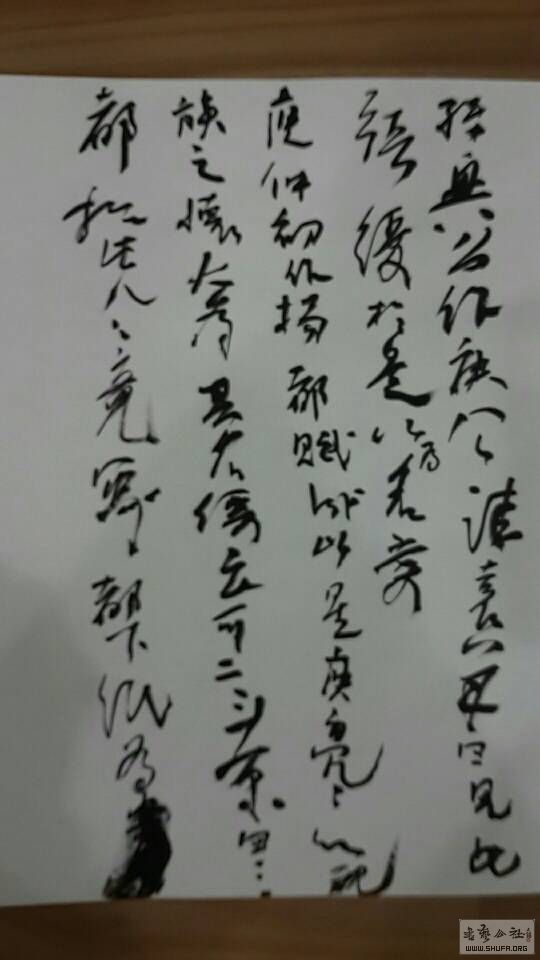 孫興公作庾公誄袁羊曰見此
張緩於是以為名賞
庾仲初作揚都賦成以呈庾亮亮以親
族之懷大為其名價云可三二京四三
都於此人人競寫都下紙為
書蓺公社
WWW.SHUFA.ORG